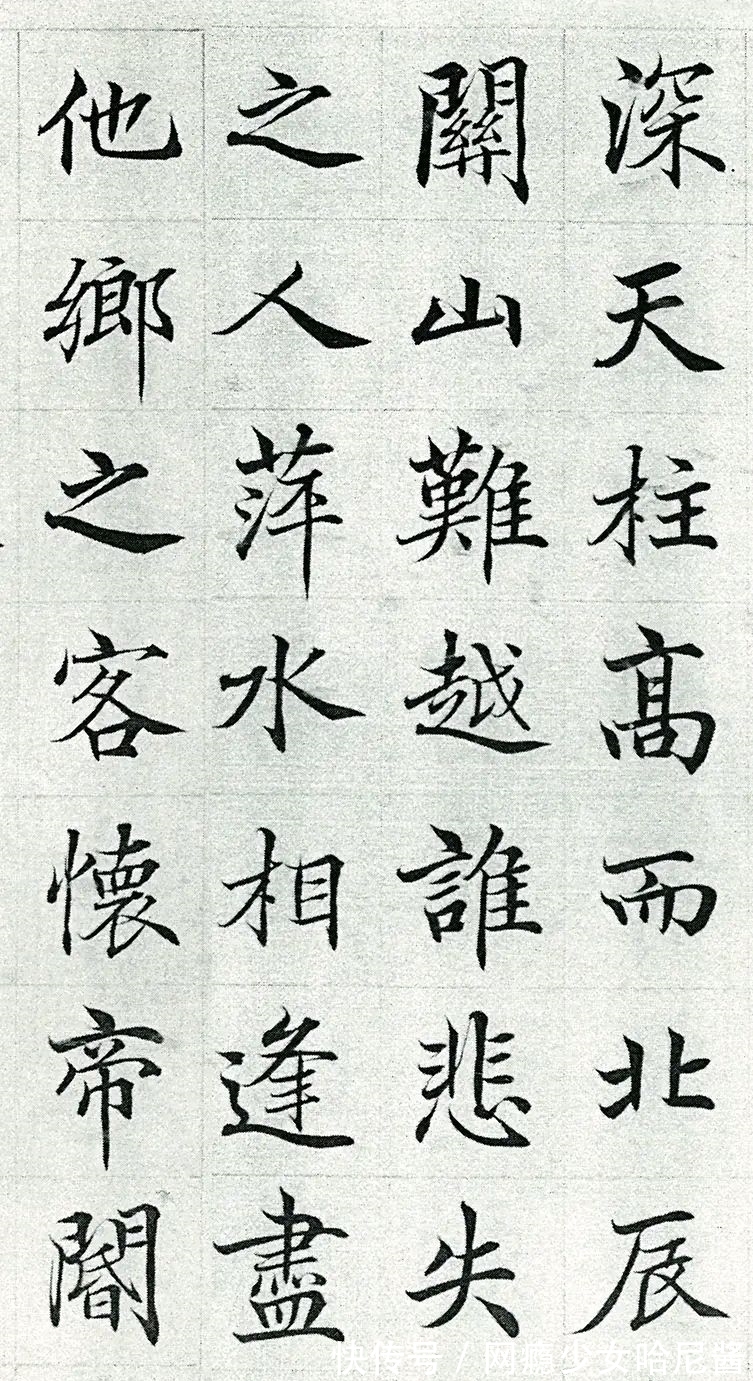 深天柱髙而北辰
關山難越誰悲失
之人萍水相逢盡
他鄉之客懷帝閽
快传号 / 网瘾少女哈尼酱